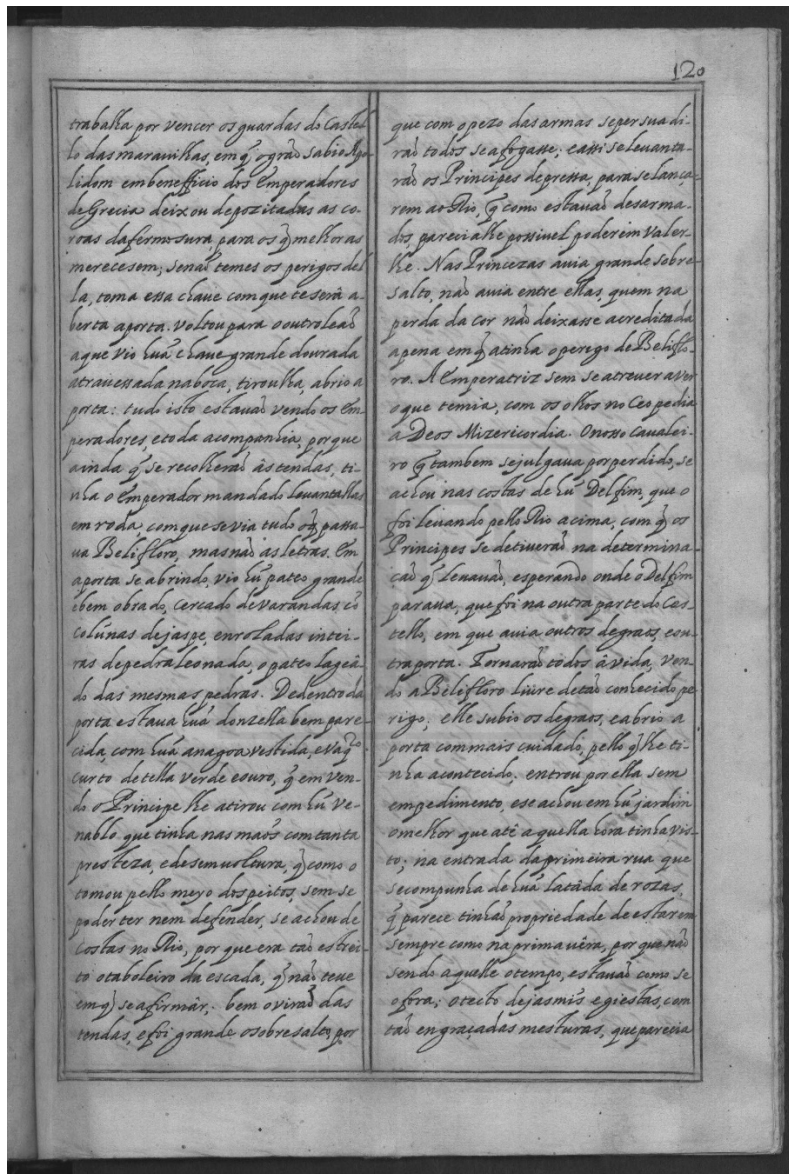 120
trabalha por vencer os guardas do Castel-
lo das maravilhas, em q̃ o grão sabio Ago-
lidom em beneffìcio dos Emperadores
de Grecia deixou depozitadas as co-
roas da fermosura, para os q̃ melhor as
merecesem; senaõ temes os perigos del-
la, toma essa chave com que te serâ a-
berta a porta. Voltou para o outro leaõ
a que vio huã chave grande dourada
atravessada na boca, tiroulha, abrio a
porta: tudo isto estavaõ vendo os Em-
peradores, e toda a companhia, porque
ainda q̃ se recolheraõ âs tendas, ti-
nha o Emperador mandado levantallas
em roda, com que se via tudo o q̃ passa-
va Belifloro, mas naõ as letras. Em
a porta se abrindo, vio hu͂ pateo grande
e bem obrado, cercado de varandas, cõ
colunas de jaspe, enroladas intei-
ras de pedra leonada, o pateo lageâ-
do das mesmas pedras. De dentro da
porta estava huã donzella bem pare-
cida, com huã anagoa vestida, e vaq.ro
curto de tella verde e ouro, q̃ em ven-
do o Principe lhe atirou com hu͂ ve-
nablo que tinha nas maõs com tanta
presteza, e desemvoltura, q̃ como o
tomou pello meyo dos peitos, sem se
poder ter nem defender, se achou de
costas no Rio, por que era taõ estrei-
to o taboleiro da escada, q̃ naõ teve
em q̃ se afirmar; bem o viraõ das
tendas, e foi grande o sobresalto, por
que com o pezo das armas se persuadi-
raõ todos se afogasse; e assi se levanta-
raõ os Principes de pressa, para se lança-
rem ao Rio, q̃ como estavaõ desarma-
dos, parecialhe possivel poderem valer-
lhe. Nas Princezas avia grande sobre-
salto, naõ avia entre ellas, quem na
perda da cor naõ deixasse acreditada
a pena em q̃ a tinha o perigo de Beliflo-
ro. A Emperatriz sem se atrever a ver
o que temia, com os olhos no Ceo pedia
a Deos Mizericordia. O nosso Cavalei-
ro q̃ tambem se julgava por perdido, se
achou nas costas de hu͂ Delfim, que o
foi levando pello Rio acima, com q̃ os
Principes se detiveraõ na determina-
çaõ q̃ levavaõ, esperando onde o Delfim
parava, que foi na outra parte do Cas-
tello, em que avia outros degraos, e ou-
tra porta. Tornaraõ todos â vida, ven-
do a Belifloro livre de taõ conhecido pe-
rigo; elle subio os degraos, e abrio a
porta com mais cuidado, pello q̃ lhe ti-
nha acontecido. entrou por ella sem
empedimento, e se achou em hu͂ jardim
o melhor que atê aquella hora tinha vis-
to; na entrada da primeira rua que
se compunha de huã latâda de rozas,
q̃ parece tinhaõ propriedade de estarem
sempre como na primavêra, por que naõ
sendo aquelle o tempo, estavaõ como se
o fora; o tecto de jasmis e giestas, com
taõ engraçadas mesturas, que parecia